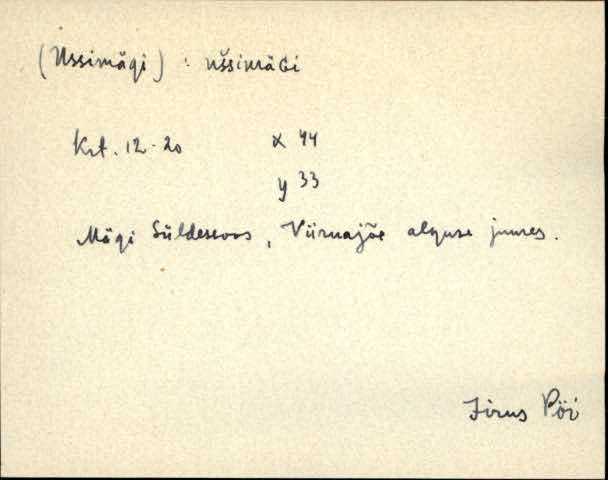 (Ussimägi) : uššimäGi
Krt. 12-20 x 44
y 33
Mägi Süldesoos, Viirnajõe alguse juures.
Pöi